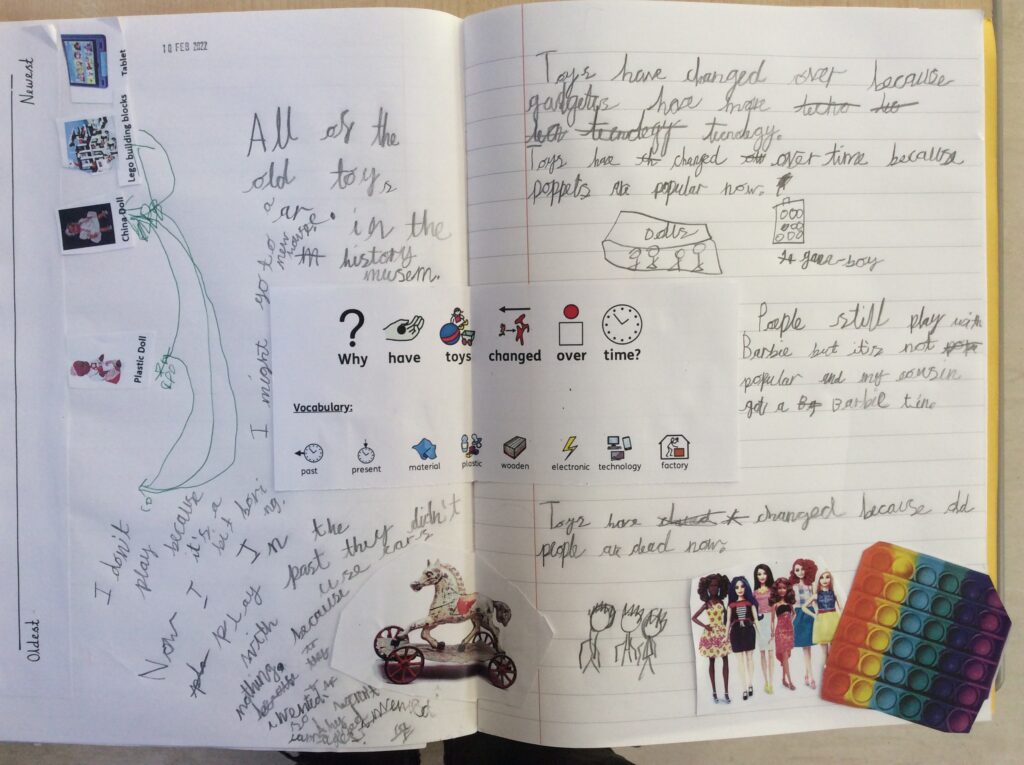 Newest
Tablet
Lego building blocks
China Doll
Plastic Doll
Oldest
10 FEB 2022
All of the
old toys
are
in the
history
musem.
I might go to
a
new
house.
I don't
play
because
it's a
bit
boring.
Now I
play
with
nothing.
In the
past they didn't
use cars
because
Toys have changed over because
gadgetys have more
tecnology.
Toys have changed over time because
poppets are popular now.
Dolls
game-boy
Why have toys changed over time?
Vocabulary:
past present material plastic wooden electronic technology factory
Poeple still play with
Barbie but it's not
popular and my cousin
got a Barbie tin.
Toys have changed because old
people are dead now.